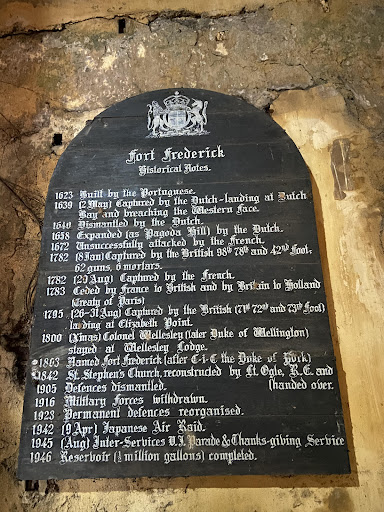 Fort Frederick
Historical Notes.
1623 Built by the Portuguese.
1639 (2 May) Captured by the Dutch-landing at Dutch
Bay and breaching the Western Face.
1640 Dismantled by the Dutch.
1658 Expanded (as Pagoda Hill) by the Dutch.
1672 Unsuccessfully attacked by the French.
1782 (8 Jan) Captured by the British 98th 78th and 42nd Foot-
62 guns, 6 mortars.
1782 (29 Aug) Captured by the French.
1783 Ceded by France to British and by Britain to Holland
(Treaty of Paris)
1795 (26-31 Aug) Captured by the British (71st 72nd and 73rd Foot)
landing at Elizabeth Point.
1800 (Xmas) Colonel Wellesley (later Duke of Wellington)
stayed at Wellesley Lodge.
1803 Named Fort Frederick (after C-i-C the Duke of York)
1842 St. Stephen's Church, reconstructed by Lt. Ogle, R.E. and
1905 Defences dismantled. (handed over.
1916 Military Forces withdrawn.
1923 Permanent defences reorganised.
1942 (9 Apr) Japanese Air Raid.
1945 (Aug) Inter-Services V.J. Parade & Thanks-giving Service
1946 Reservoir (½ million gallons) completed.